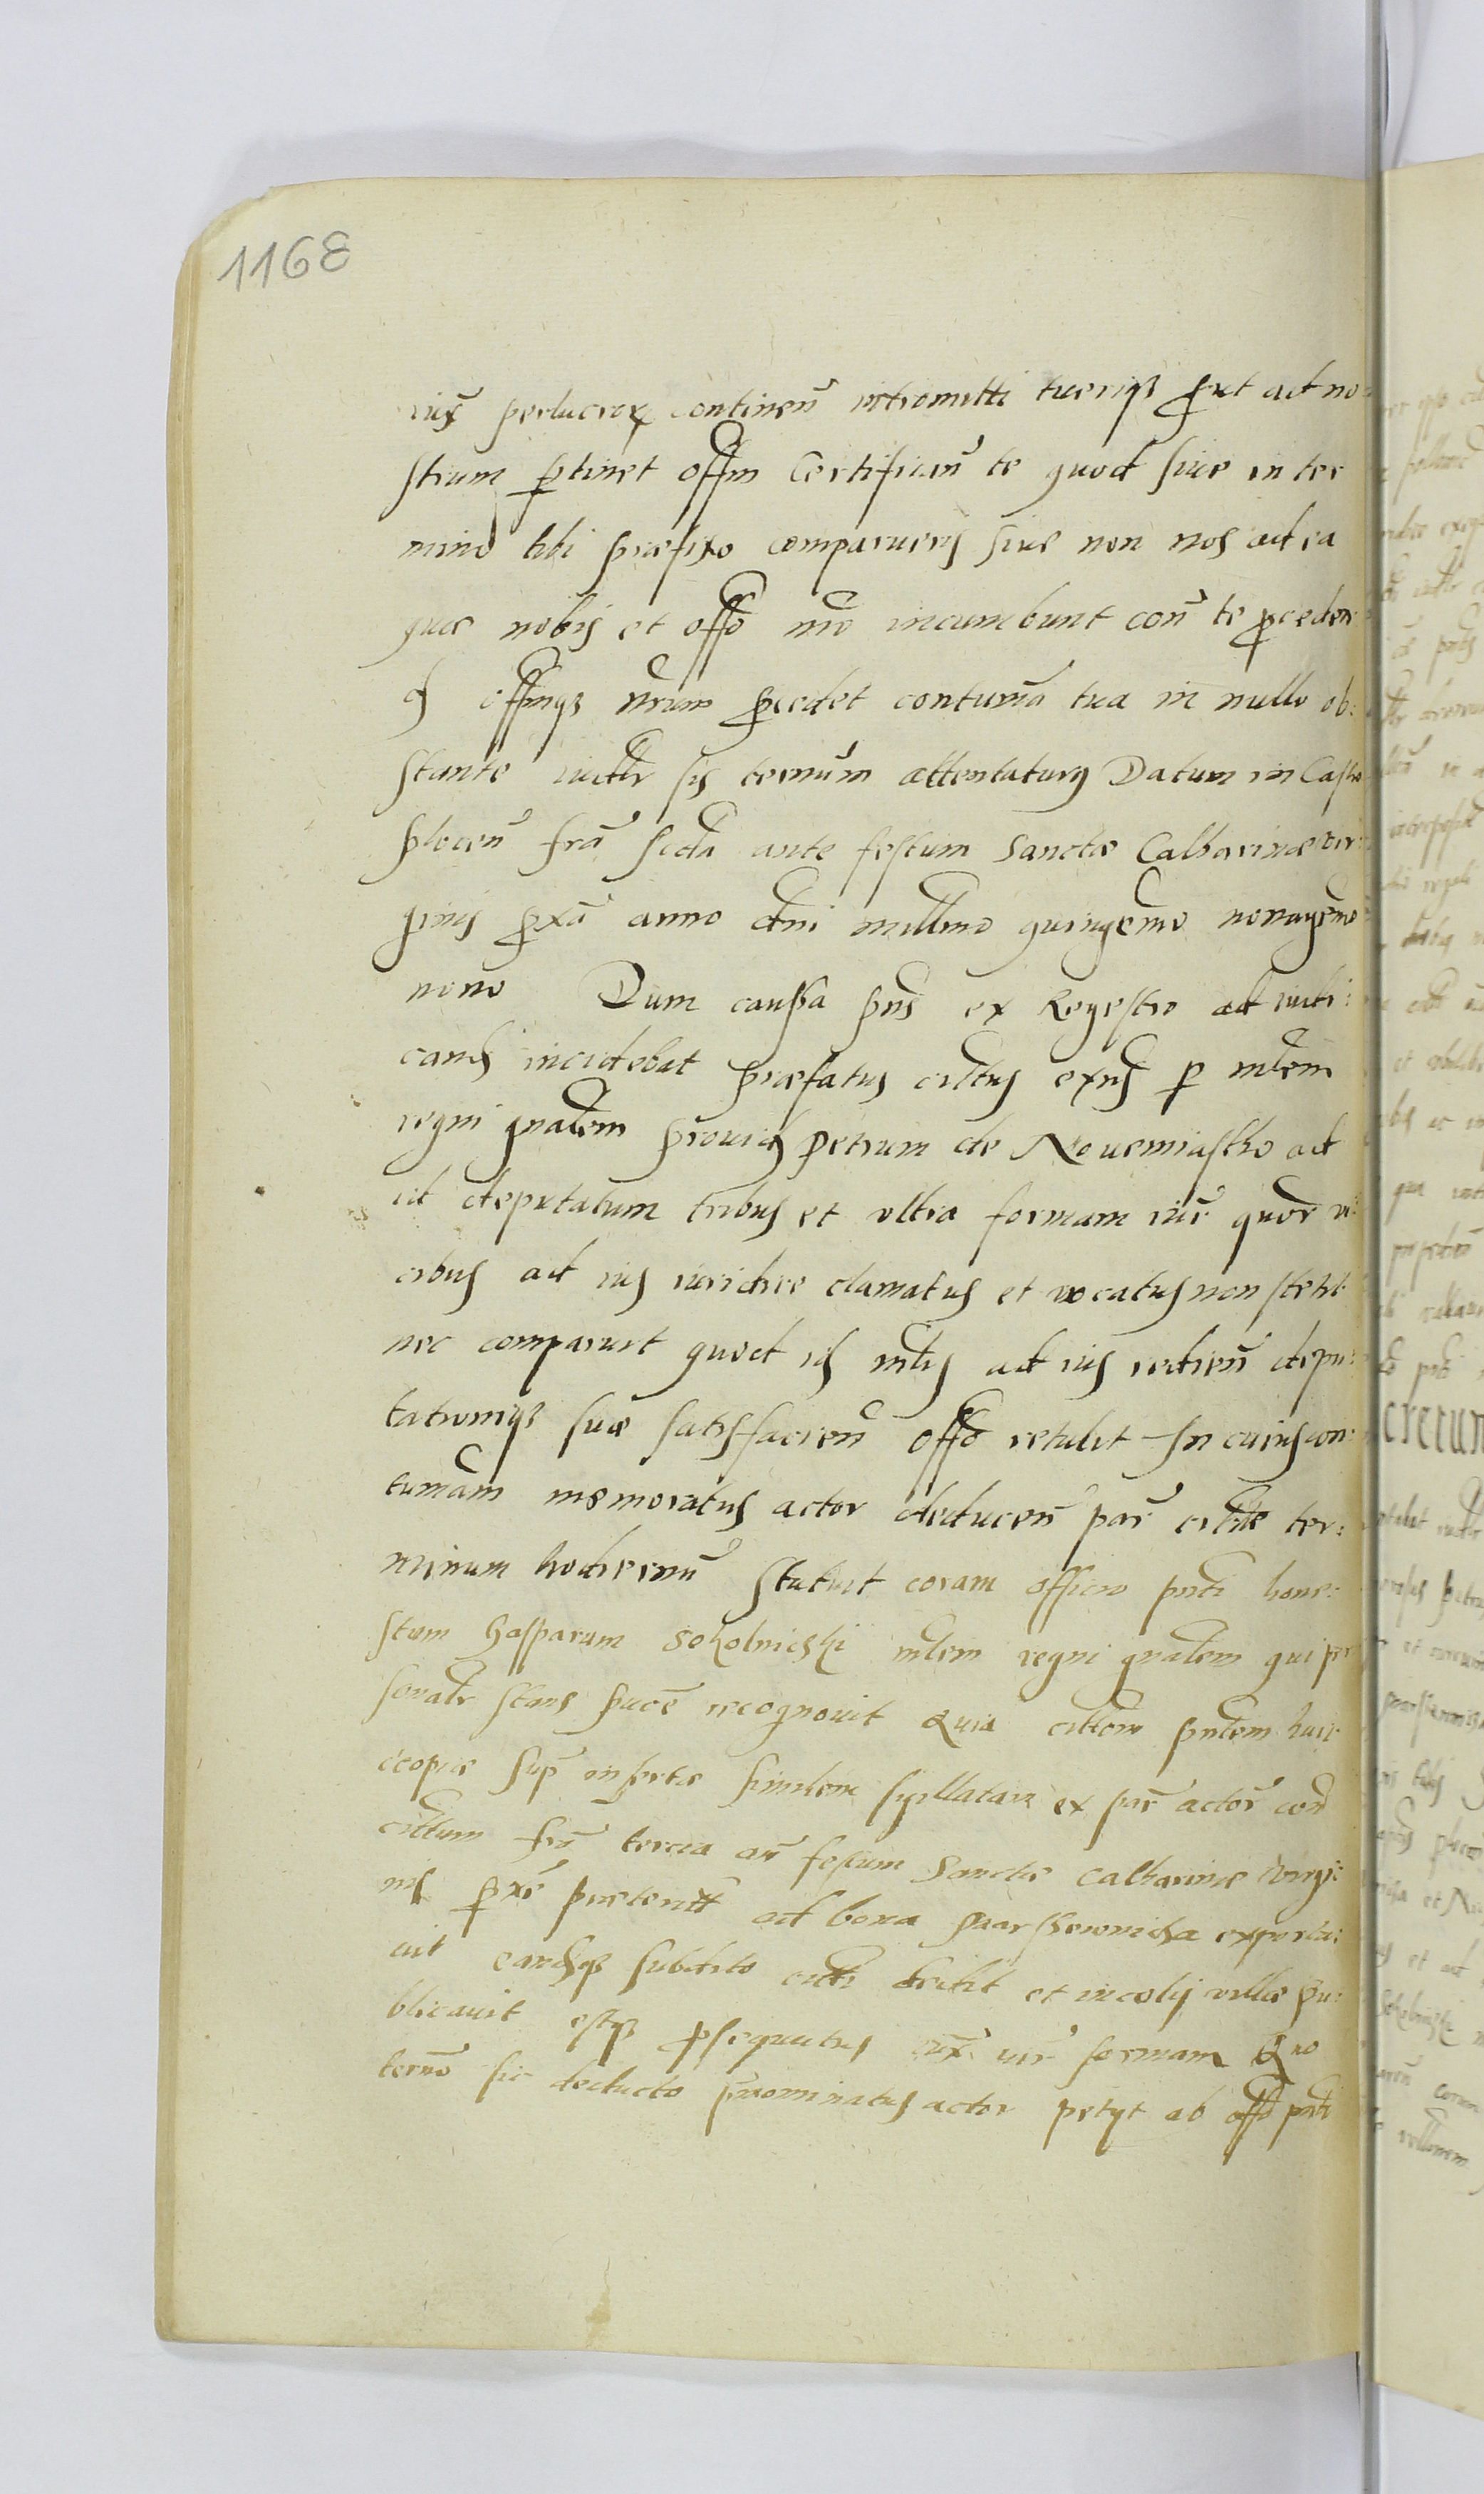 1168
iux perlucrox continen intromitti tueriqz prout ad no
strum ptinet offm Certifican te quod siue in ter
mino tibi praefixo comparueris siue non nos ad ea
quae nobis et offo nro incumbunt con te procedem
offmqz nrum procedet contuma tua in nullo ob:
stante iudlr sis termum attentaturus Datum in Castro
plocen fria scda ante festum Sanctae Catharinae vir:
ginis proxa anno dni millmo quingemo nonagemo
nono Dum caussa pns ex Regestro ad iudi:
cand incidebat praefatus citatus exns p mlem
regni gnalem prouid Petrum de Nouemiastho ad
id deputatum tribus et vltra formam iur quor vi:
cibus ad ius iuridice clamatus et vocatus non stetit
nec comparuit quod is mlis ad ius redien depu:
tationiqz suae satisfacien offo retulit In cuius con:
tumam memoratus actor deducen par citate ter:
minum hodiernu Statuit coram officio pnti hone:
stum Gasparum Sokolnicski mlem regni gnalem qui per
sonalr stans puce recognouit Quia cittem pntem huic
copiae sup insertae similem sigillatam ex par actor con
cittum fria tercia an festum Sanctae Catharinae virgi:
nis proxe praeterit ad bona Parskewnicza exportu:
uit eandqz subdito citti dedit et incolis villae pu:
blicauit estqz psequutus iux iur formam Quo
termo sic deducto praenominatus actor petyt ab offo pnti